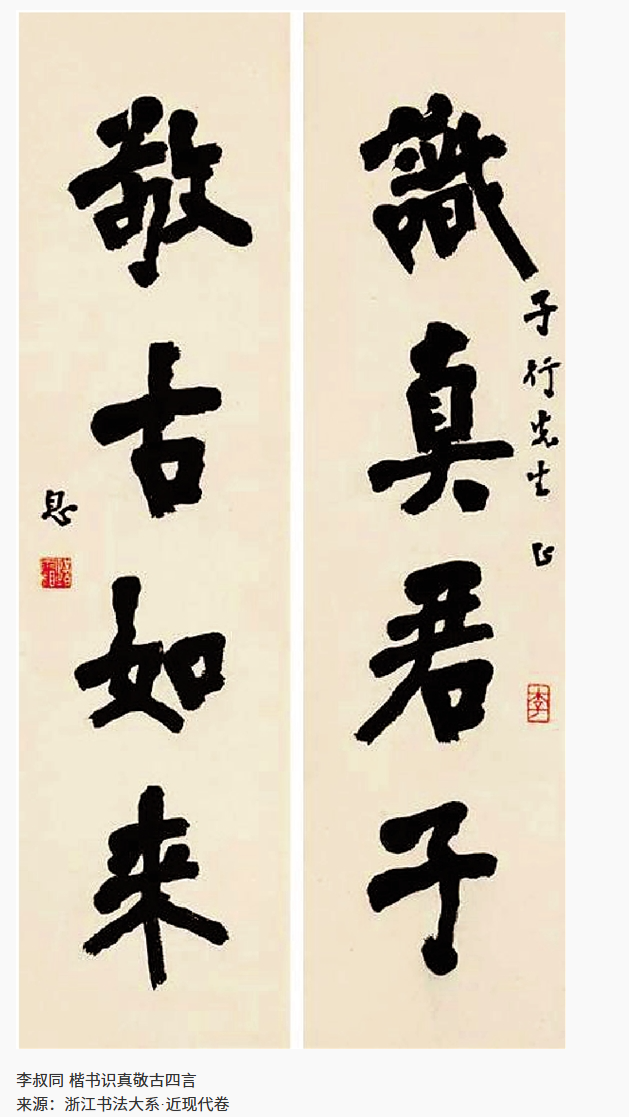 識真君子
子行先生正
李
敬古如来
息
李叔同 楷书识真敬古四言
来源：浙江书法大系·近现代卷